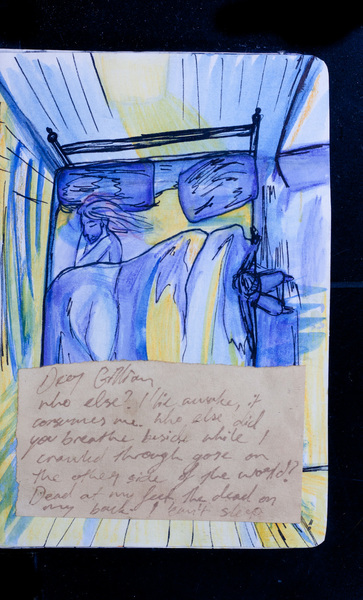 Dear Gillian,
who else? I lie awake, it
consumes me. Who else did
you breathe beside while I
crawled through gore on
the other side of the world?
Dead at my feet, the dead on
my back. I can't sleep